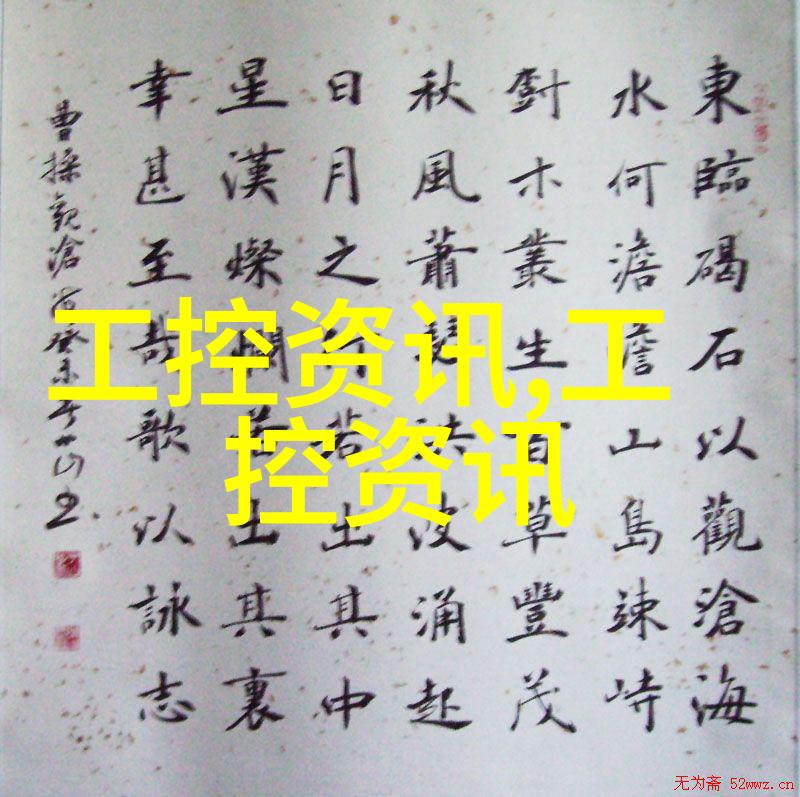 東臨碣石以觀滄海
水何澹澹山島竦峙
樹木叢生百草豐茂
秋風蕭瑟洪波涌起
日月之行若出其中
星漢燦爛若出其裏
幸甚至哉歌以詠志
曹操觀滄海癸未
工控资讯,工
控资讯
无为斋 52wwz.cn